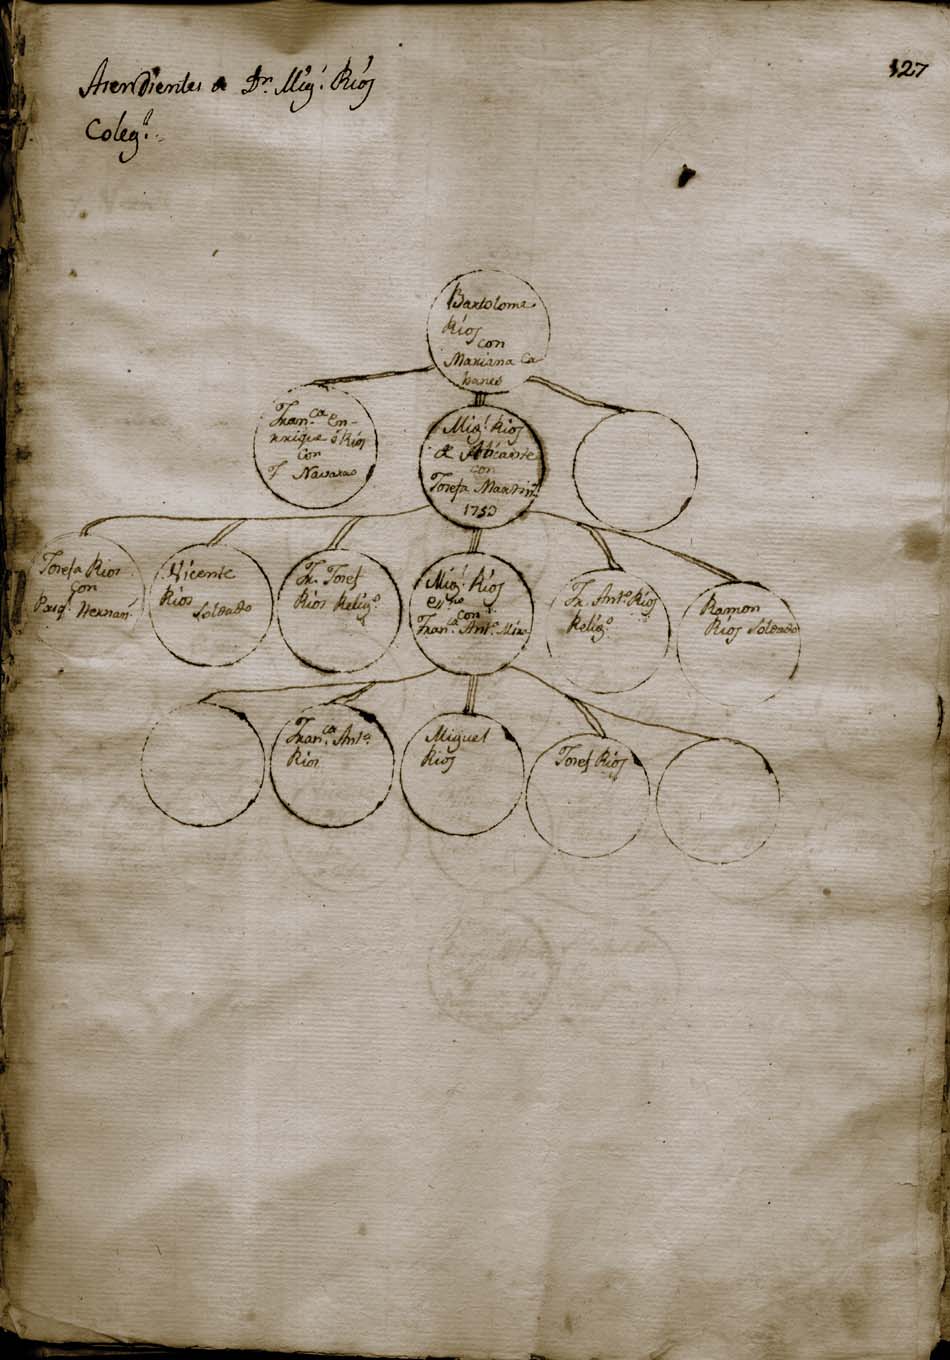 127
Asendientes de Dn. Migl. Ríos
Colegl.
Bartolome
Ríos
con
Mariana Ca
banes
Franca. En-
rrique ó Ríos
con
F Navarro
Migl. Ríos
de Albicante
con
Josefa Martinz.
1750
Josefa Rios
con
Pasql. Hernan
Vicente
Rios
Soldado
Fr. Josef
Ríos Religo.
Migl. Ríos
esno.
con
Franca. Anta. Mira
Fr. Anto. Ríos
Religo.
Ramon
Ríos Soldado
Franca. Anta.
Rios
Miguel
Ríos
Josef Ríos